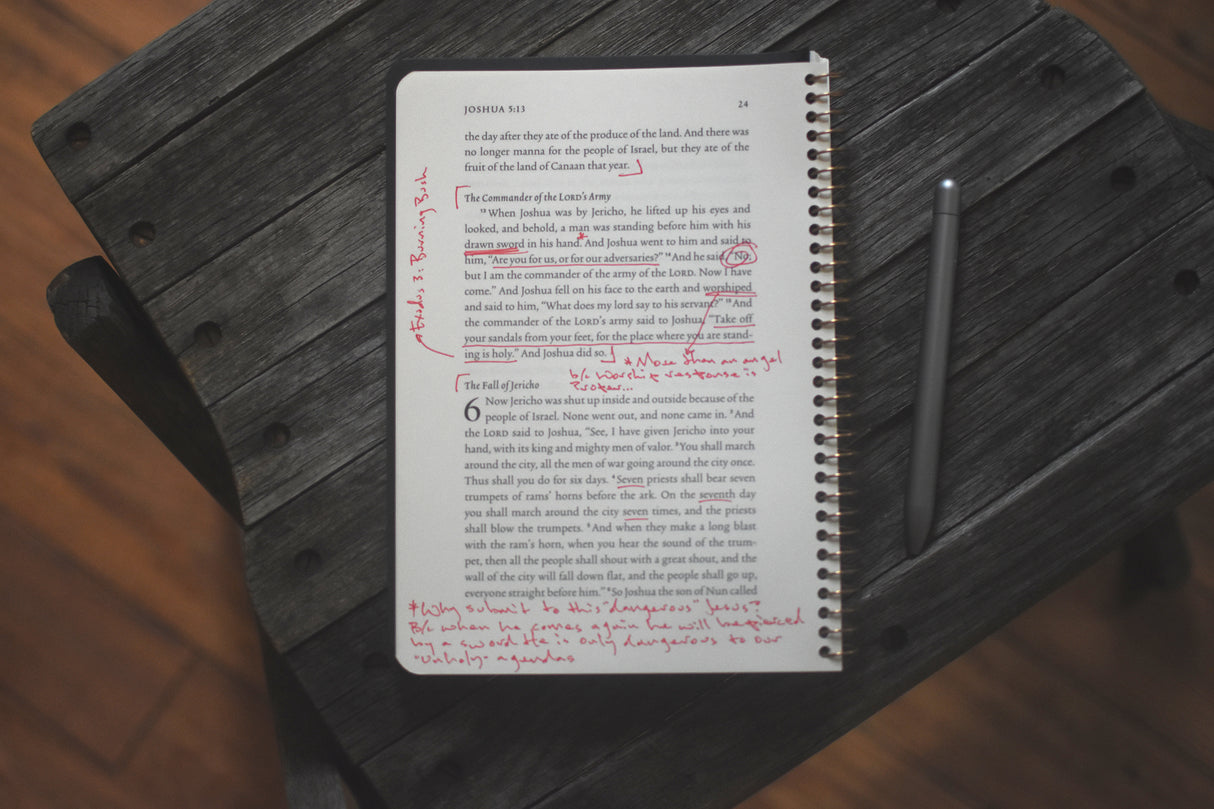 JOSHUA 5:13 24
the day after they ate of the produce of the land. And there was
no longer manna for the people of Israel, but they ate of the
fruit of the land of Canaan that year.
→Exodus 3: Burning Bush
The Commander of the LORD'S Army
13 When Joshua was by Jericho, he lifted up his eyes and
looked, and behold, a man was standing before him with his
drawn sword in his hand.* And Joshua went to him and said to
him, “Are you for us, or for our adversaries?” 14 And he said, “No;
but I am the commander of the army of the LORD. Now I have
come.” And Joshua fell on his face to the earth and worshiped
and said to him, “What does my lord say to his servant?” 15 And
the commander of the LORD'S army said to Joshua, “Take off
your sandals from your feet, for the place where you are stand-
ing is holy.” And Joshua did so.
*More than an angel
b/c worship response is
proper...
The Fall of Jericho
6 Now Jericho was shut up inside and outside because of the
people of Israel. None went out, and none came in. 2 And
the LORD said to Joshua, “See, I have given Jericho into your
hand, with its king and mighty men of valor. 3 You shall march
around the city, all the men of war going around the city once.
Thus shall you do for six days. 4 Seven priests shall bear seven
trumpets of rams' horns before the ark. On the seventh day
you shall march around the city seven times, and the priests
shall blow the trumpets. 5 And when they make a long blast
with the ram's horn, when you hear the sound of the trum-
pet, then all the people shall shout with a great shout, and the
wall of the city will fall down flat, and the people shall go up,
everyone straight before him.” 6 So Joshua the son of Nun called
*Why submit to this "dangerous" Jesus?
B/c when he comes again he will be pierced
by a sword. He is only dangerous to our
"unholy" agendas